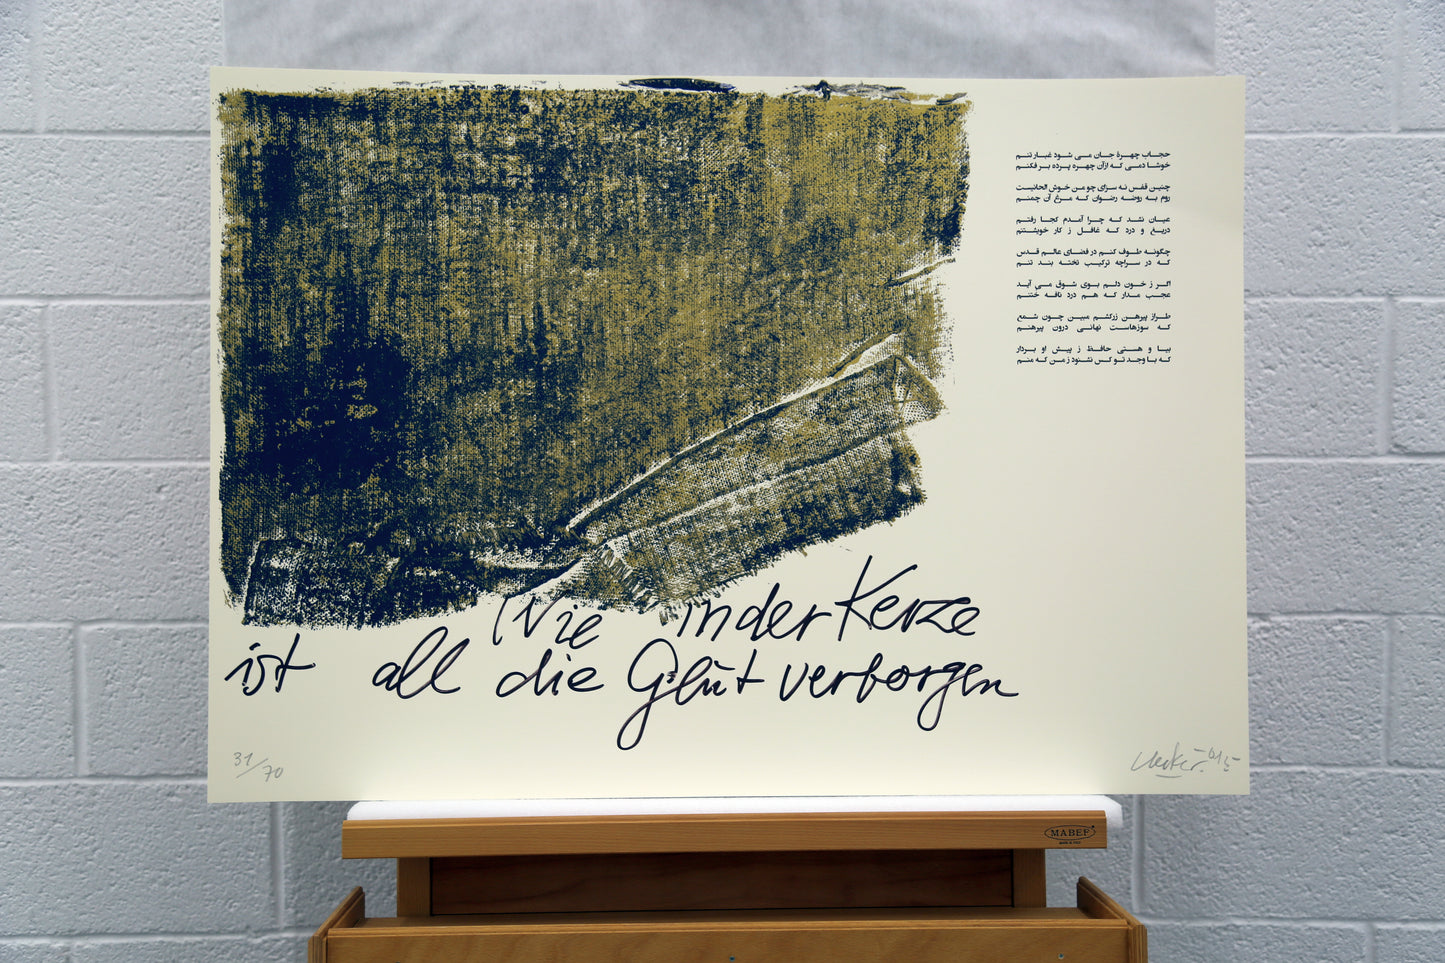 حجاب چهرهٔ جان می شود غبار تنم
خوشا دمی که ازآن چهره پرده بر فکنم
چنین قفس نه سزای چو من خوش الحانیست
روم به روضه رضوان که مرغ آن چمنم
عیان نشد که چرا آمدم کجا رفتم
دریغ و درد که غافل ز کار خویشتنم
چگونه طوف کنم در فضای عالم قدس
که در سراچه ترکیب تخته بند تنم
اگر ز خون دلم بوی شوق می آید
عجب مدار که هم درد نافه ختنم
طراز پیرهن زرکشم مبین چون شمع
که سوزهاست نهانی درون پیرهنم
بیا و هستی حافظ ز پیش او بردار
که با وجد تو کس نشنود ز من که منم
Wie in der Kerze
ist all die Glut verborgen
31/70
Uecker
MABEF